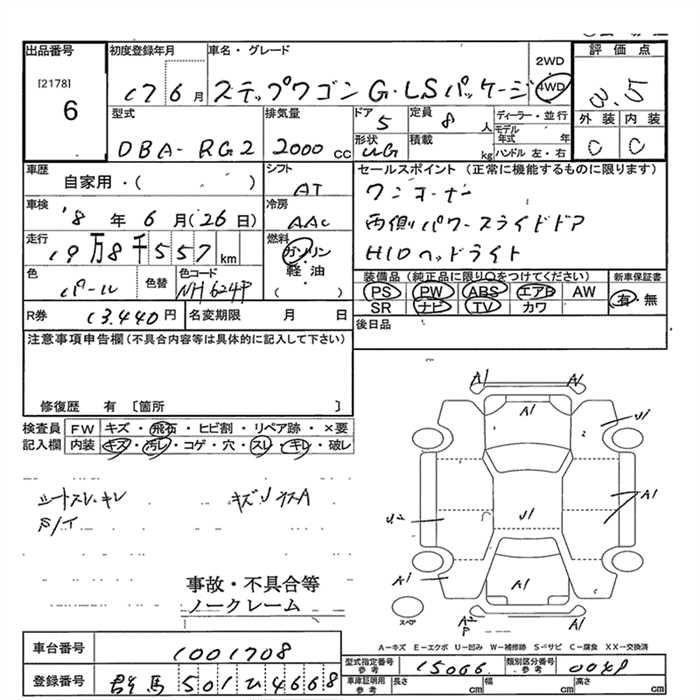 出品番号 初度登録年月 車名・グレード 2WD 評価点
[2178] 6 17 6月 ステップワゴン G・LSパッケージ 4WD 3.5
型式 排気量 ドア 5 定員 8 人 ディーラー・並行 外装 内装
DBA-RG2 2000 cc 形状 UG 積載 kg モデル年式 年 ハンドル 左・右 C C
車歴 自家用・( ) シフト AT セールスポイント (正常に機能するものに限ります)
車検 '8 年 6 月 (26 日) 冷房 AAC ワンオーナー
両側パワースライドドア
走行 19万8千557 km 燃料 ガソリン・軽油・( ) HIDヘッドライト
色 パール 色替 色コード NH624P 装備品 (純正品に限り○をつけてください) 新車保証書
PS PW ABS エアB AW 有・無
SR ナビ TV カワ
R券 13,440 円 名変期限 月 日 後日品
注意事項申告欄 (不具合内容等は具体的に記入して下さい)
修復歴 有 〔箇所 〕
検査員記入欄 FW キズ・飛石・ヒビ割・リペア跡・×要
内装 キズ・汚レ・コゲ・穴・スレ・キレ・破レ
シートスレ・キレ
cm
A1 A1
A1 U1
A1
U2 U1
A1 A1
スペア
A2 P
事故・不具合等
ノークレーム
A-キズ E-エクボ U-凹み W-補修跡 S-サビ C-腐食 XX-交換済
車台番号 1001708
型式指定番号 参考 15066 類別区分番号 参考
登録番号 群馬 501 ひ 4668
車庫証明用参考 長さ cm 幅 cm 高さ cm